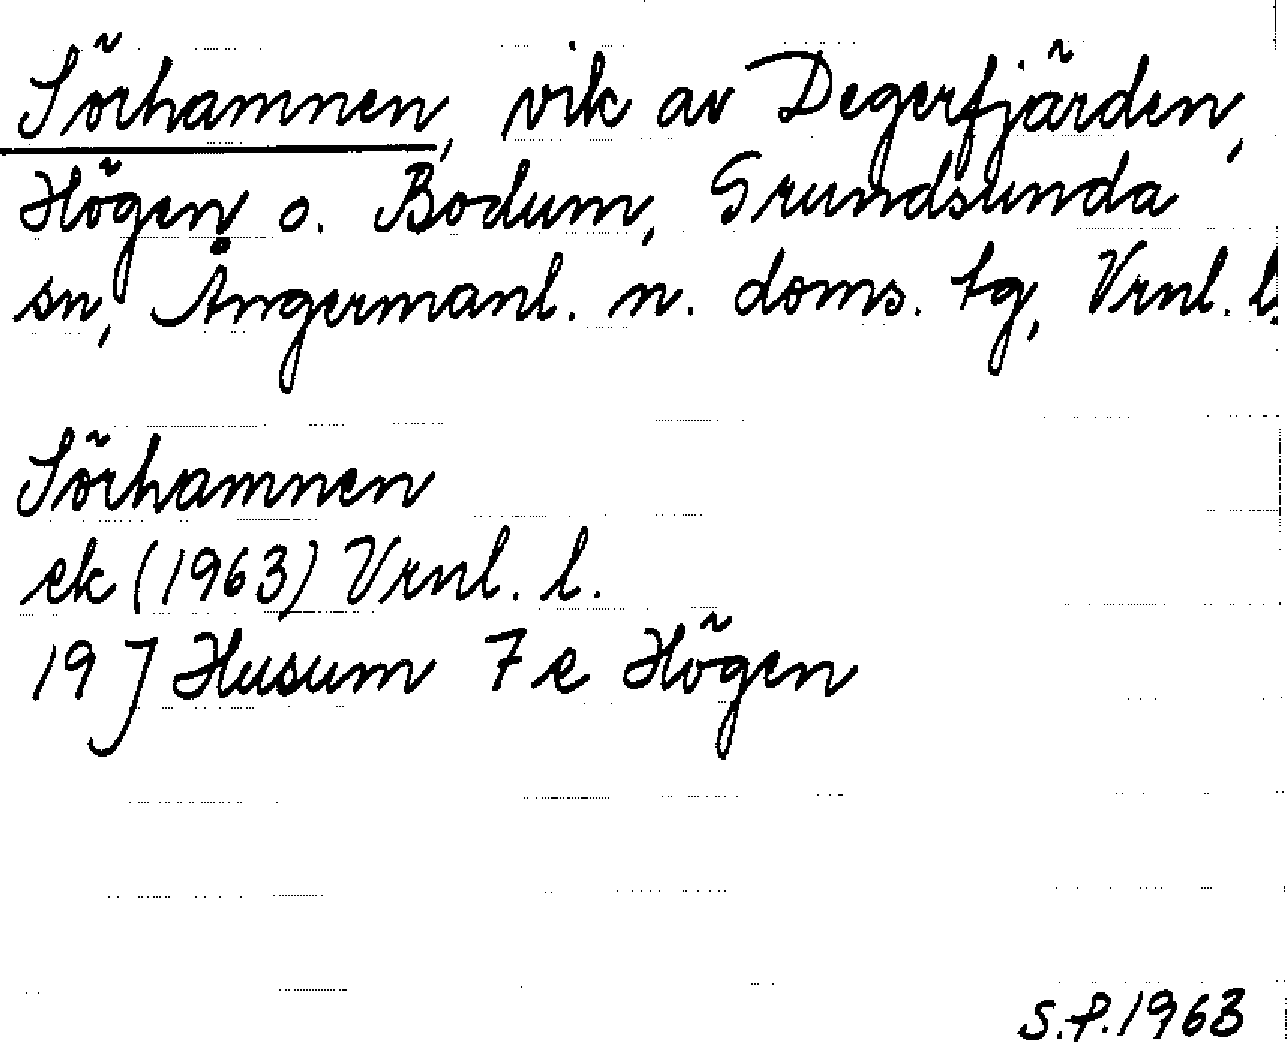 Sörhamnen, vik av Degerfjärden,
Högen o. Bodum, Grundsunda
sn, Ångermanl. n. doms. tg, Vrnl. l.
Sörhamnen
ek (1963) Vrnl. l.
19 J Husum 7 e Högen
S.P. 1963